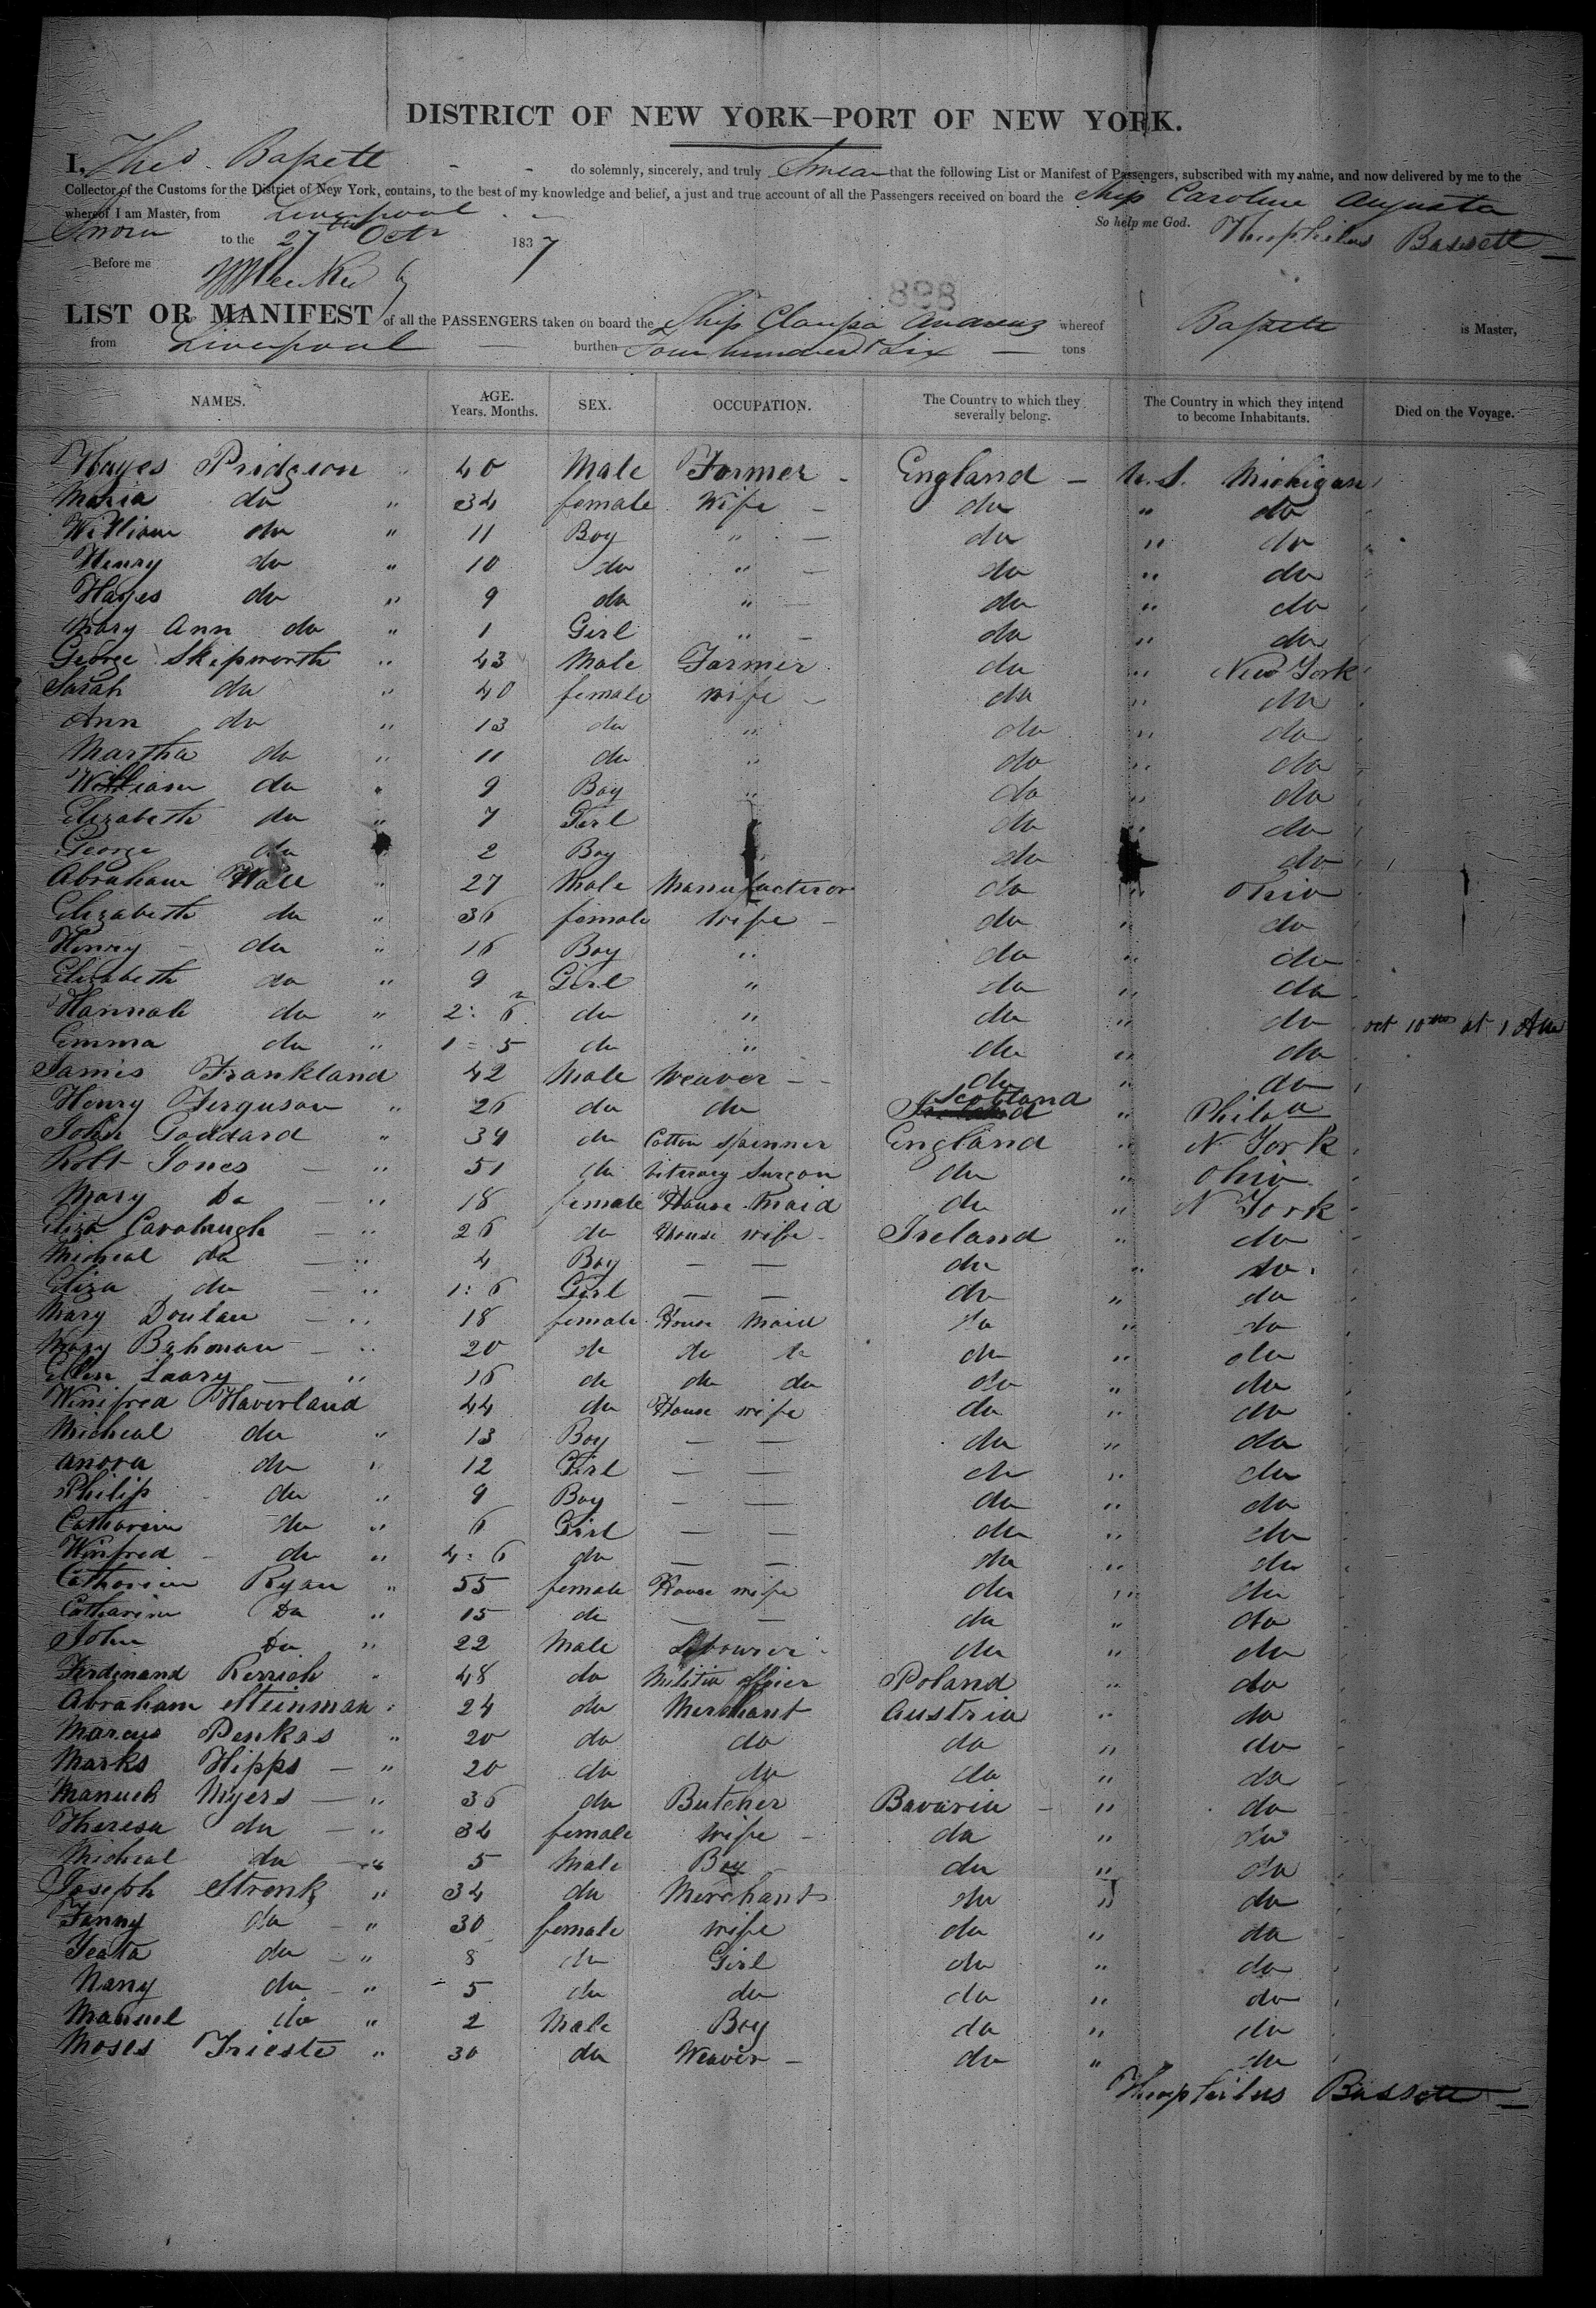 DISTRICT OF NEW YORK—PORT OF NEW YORK.
I, Theo. Bassett - - do solemnly, sincerely, and truly Swear that the following List or Manifest of Passengers, subscribed with my name, and now delivered by me to the
Collector of the Customs for the District of New York, contains, to the best of my knowledge and belief, a just and true account of all the Passengers received on board the Ship Caroline Augusta
whereof I am Master, from Liverpool - - So help me God. Theophilus Bassett
Sworn to the 27th Octr 1837
Before me
898
LIST OR MANIFEST of all the PASSENGERS taken on board the Ship whereof Bassett is Master,
from Liverpool — burthen Four hundred & Six — tons
NAMES. AGE. Years. Months. SEX. OCCUPATION. The Country to which they severally belong. The Country in which they intend to become Inhabitants. Died on the Voyage.
Hayes Pridgeon " 40 Male Farmer - England - U.S. Michigan
Maria do " 34 female Wife - do " do
William do " 11 Boy " - do " do
Henry do " 10 do " - do " do
Hayes do " 9 do " - do " do
Mary Ann do " 1 Girl " - do " do
George Skipworth " 43 Male Farmer do " New York
Sarah do " 40 female wife - do " do
Ann do " 13 do " do " do
Martha do " 11 do " do " do
William do " 9 Boy " do " do
Elizabeth do " 7 Girl do " do
George do 2 Boy do do
Abraham Hall " 27 Male Manufacteror do " Ohio
Elizabeth do " 36 female Wife - do " do
Henry - do " 16 Boy " do " do
Elizabeth do " 9 Girl " do " do
Hannah do " 2: 6 do " do " do oct 10th at 1 AM
Emma do " 1 = 5 do " do " do
James Frankland 42 Male Weaver - - do " do
Henry Ferguson " 26 do do Scotland " Phila
John Goddard " 39 do Cotton Spinner England " N. York
Robt Jones - " 51 do Viterary Surgon do " Ohio
Mary Do - " 18 female House Maid do " N York
Eliza Cavabaugh - " 26 do House wife - Ireland " do
Micheal do - " 4 Boy — — do " do
Eliza do - " 1: 6 Girl — — do " do
Mary Doulan - " 18 female House Maid do " do
Mary Bahonan - " 20 do do do do " do
Ellen Laary - " 16 do do do do " do
Winifred Haverland 44 do House wife do " do
Micheal do " 13 Boy — — do " do
Anora do " 12 Girl — — do " do
Philip do " 9 Boy — — do " do
Catharin do " 6 Girl — — do " do
Winfred - do " 4: 6 do — — do " do
Catharin Ryan " 55 female House wife do " do
Catharin Do " 15 do — — do " do
John Do " 22 Male Labourer - do " do
Ferdinand Rerrich " 48 do Militia officer Poland " do
Abraham Steinman : 24 do Merchant Austria " do
Marcus Penkas " 20 do do do " do
Marks Hipps - " 20 do do do " do
Manuel Myers - " 36 do Butcher Bavaria - " do
Theresa do - " 34 female Wife - do " do
Micheal do - " 5 Male Boy - do " do
Joseph Stronk " 34 do Merchant do " do
Fanny do - " 30 female wife do " do
Jeata do - " 8 do Girl do " do
Nany do - " 5 do do do " do
Manuel do " 2 Male Boy do " do
Moses Trieste " 30 do Weaver - do " do
Theophilus Bassett